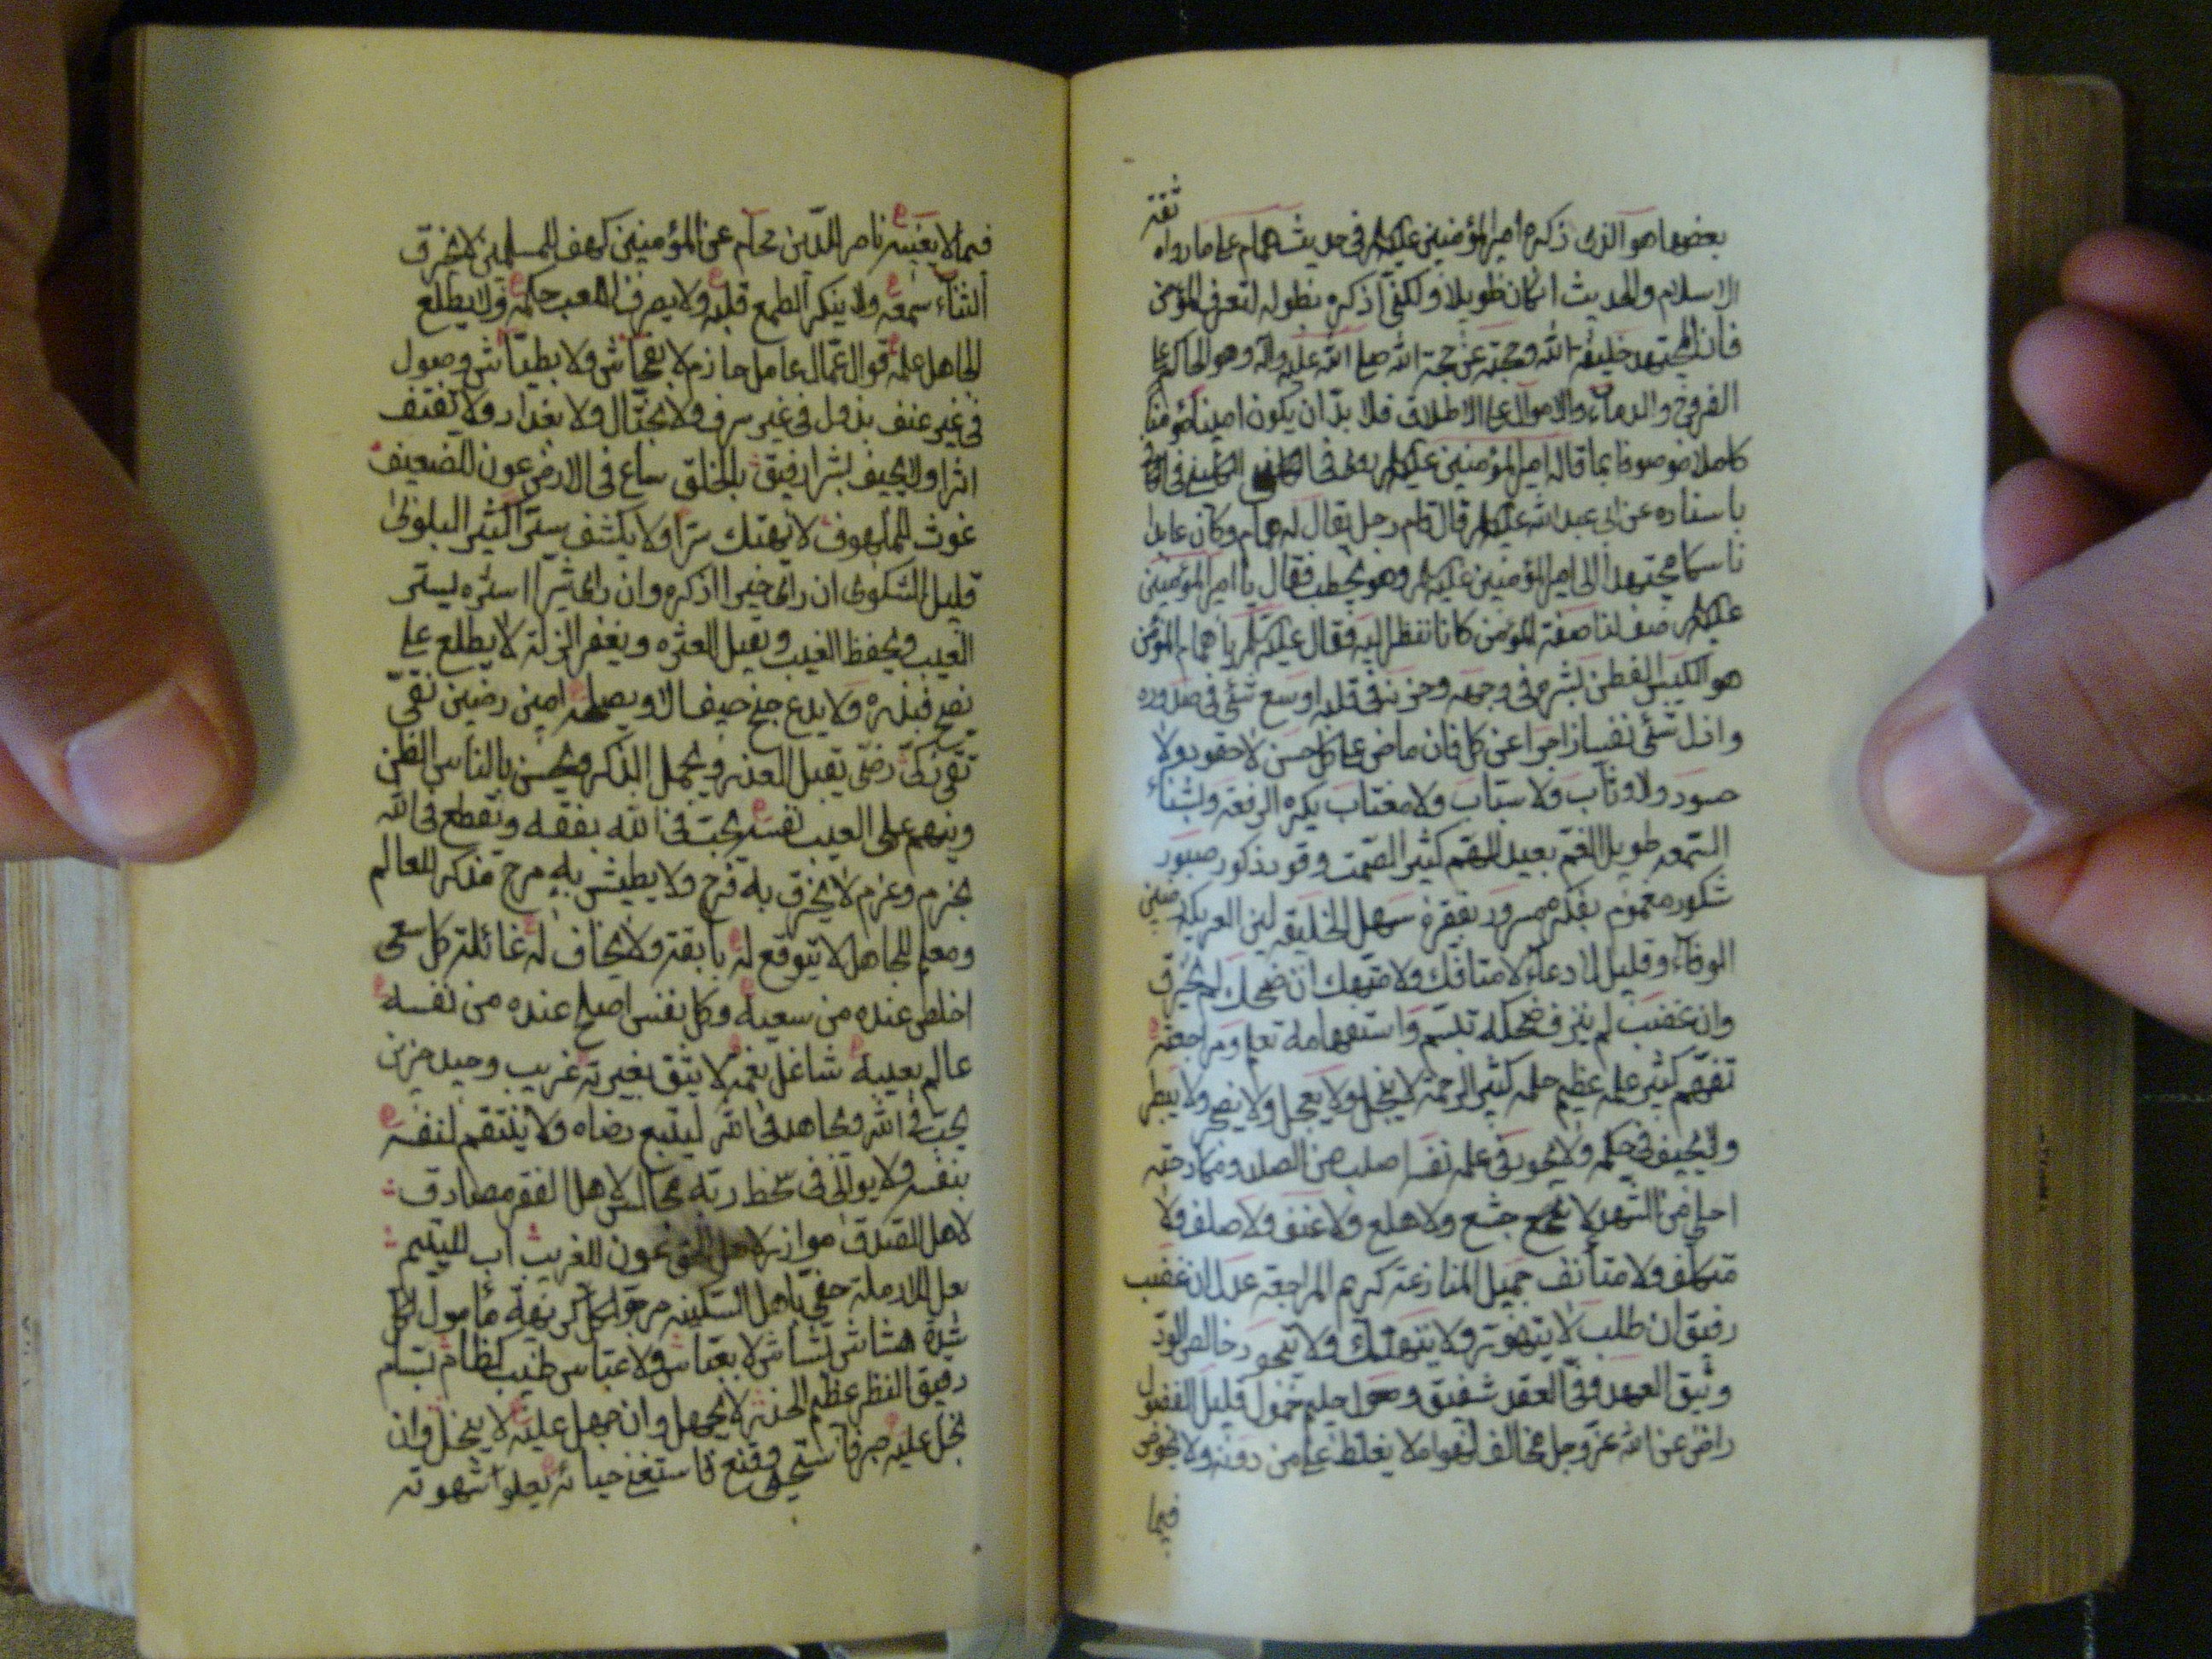 ثقة
بعضها هو الذى ذكره امير المؤمنين عليكم فى حديث همام على ما رواه
الاسلام والحديث انكان طويلا ولكنى اذكره بطوله لتعرف المؤمن
فان المجتهد خليفة الله وحجته عن حجة الله صلى الله عليه واله وهو الحاكم على
الفروج والدماء والاموال على الاطلاق فلا بد ان يكون امينا مؤمنا
كاملا موصوفا بما قاله امير المؤمنين روى فى الكافى
باسناده عن ابى عبد الله قال قام رجل يقال له همام وكان عابدا
ناسكا مجتهدا الى امير المؤمنين وهو يخطب فقال يا امير المؤمنين
صف لنا صفة المؤمن كاننا ننظر اليه فقال يا همام المؤمن
هو الكيس الفطن بشره فى وجهه وحزنه فى قلبه اوسع شئ فى صدوره
واذل شئ نفسا زاجرا عن كل فان ماض على كل حسن لا حقود ولا
حسود ولا وثاب ولا سباب ولا مغتاب يكره الرفعة ويشناء
السمعه طويل الغم بعيد الهم كثير الصمت وقور ذكور صبور
شكور مغموم بفكره مسرور بفقره سهل الخليقه لين العريكه
الوفاء وقليل الادعاء لا متافك ولا متهك ان ضحك لم يخرق
وان غضب لم ينزف ضحكه تبسم واستفهامه تعلم ومراجعته
تفهم كثير علمه عظيم حلمه كثير الرحمة لا يبخل ولا يعجل ولا يضجر ولا يبطر
ولا يحيف فى حكمه ولا يجور فى علمه نفسه اصلب من الصلد ومكادحته
احلى من الشهد لا جشع ولا هلع ولا عنف ولا صلف ولا
متكلف ولا متانف جميل المنازعة كريم المراجعة عدل ان غضب
رفيق ان طلب لا يتهور ولا يتهتك ولا يتجبر خالص الود
وثيق العهد وفى العقد شفيق وصول حليم خمول قليل الفضول
راض عن الله عز وجل مخالف لهواه لا يغلظ على من دونه ولا يخوض
فيما
فيما لا يعنيه ناصر للدين محام عن المؤمنين كهف للمسلمين لا يخرق
الثناء سمعه ولا ينكى الطمع قلبه ولا يصرف اللعب حكمه ولا يطلع
الجاهل علمه قوال عمال عامل حازم لا بفحاش ولا بطياش وصول
فى غير عنف بذول فى غير سرف ولا بختال ولا بغدار ولا يقتف
اثرا ولا يحيف بشرا رفيق بالخلق ساع فى الارض عون للضعيف
غوث للملهوف لا يهتك سترا ولا يكشف سترا كثير البلوى
قليل الشكوى ان راى خيرا اذكره وان راى شرا استره يستر
العيب ويحفظ الغيب ويقيل العثره ويغفر الزلة لا يطلع على
نصح فيذره ولا يدع جنح حيف امين رصين نقى
تقى زكى رضى يقبل العذر ويجمل الذكر ويحسن بالناس الظن
ويتهم على العيب نفسه يحب فى الله بفقه ويقطع فى الله
بحزم وعزم لا يخرق به فرح ولا يطيش به مرح مذكر للعالم
ومعلم للجاهل لا يتوقع له بائقة ولا يخاف له غائلة كل سعى
اخلص عنده من سعيه وكل نفس اصلح عنده من نفسه
عالم بعيبه شاغل بغمه لا يثق بغير ربه غريب وحيد حزين
يحب فى الله ويجاهد فى الله ليتبع رضاه ولا ينتقم لنفسه
بنفسه ولا يوالى فى سخط ربه مجالس لاهل الفقر مصادق
لاهل الصدق موازر لاهل الحق عون للغريب اب لليتيم
بعل للارملة حفى باهل المسكنة مرجو لكل كريهة مأمول لكل
شدة هشاش بشاش لا بعباس ولا صليب كظام بسام
دقيق النظر عظيم الحذر لا يجهل وان جهل عليه لا يبخل وان
بخل عليه صبر وقنع فاستغنى حيائه يعلو شهوته